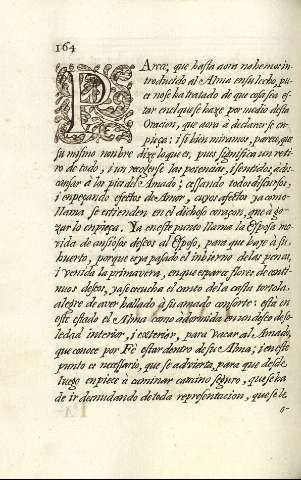 164
PArece, que hasta aora no hemos in-
troducido al Alma en su lecho, pu-
es no se ha tratado de que cosa sea es-
tar en el que se haze por medio desta
Oracion, que aora à declarar se en-
pieça; i si bien miramos, parece, que
su mismo nonbre dize lo que es, pues significa un reti-
ro de todo, i un recogerse las potencias, i sentidos, à des-
cansar à los pies del Amado; cessando todos discursos,
i enpeçando efectos de Amor, cuyos afectos ya como
llama, se estienden en el dichoso coraçon, que à go-
zar lo enpieça. Ya en este punto llama la Esposa mo-
vida de ansiosos deseos al Esposo, para que baxe à su
huerto, porque es ya pasado el inbierno de las penas,
i venida la primavera, en que esparze flores de conti-
nuos deseos, ya se escucha el canto de la casta tortola,
alegre de aver hallado à su amado consorte: està en
este estado el Alma como adormida en un deseo de so-
ledad interior, i exterior, para vacar al Amado,
que conoce por Fè estar dentro desta Alma; i en este
punto es necessario, que se advierta, para que desde
luego enpiece à caminar camino seguro, que se ha
de ir desnudando de toda representacion, que se le
o-